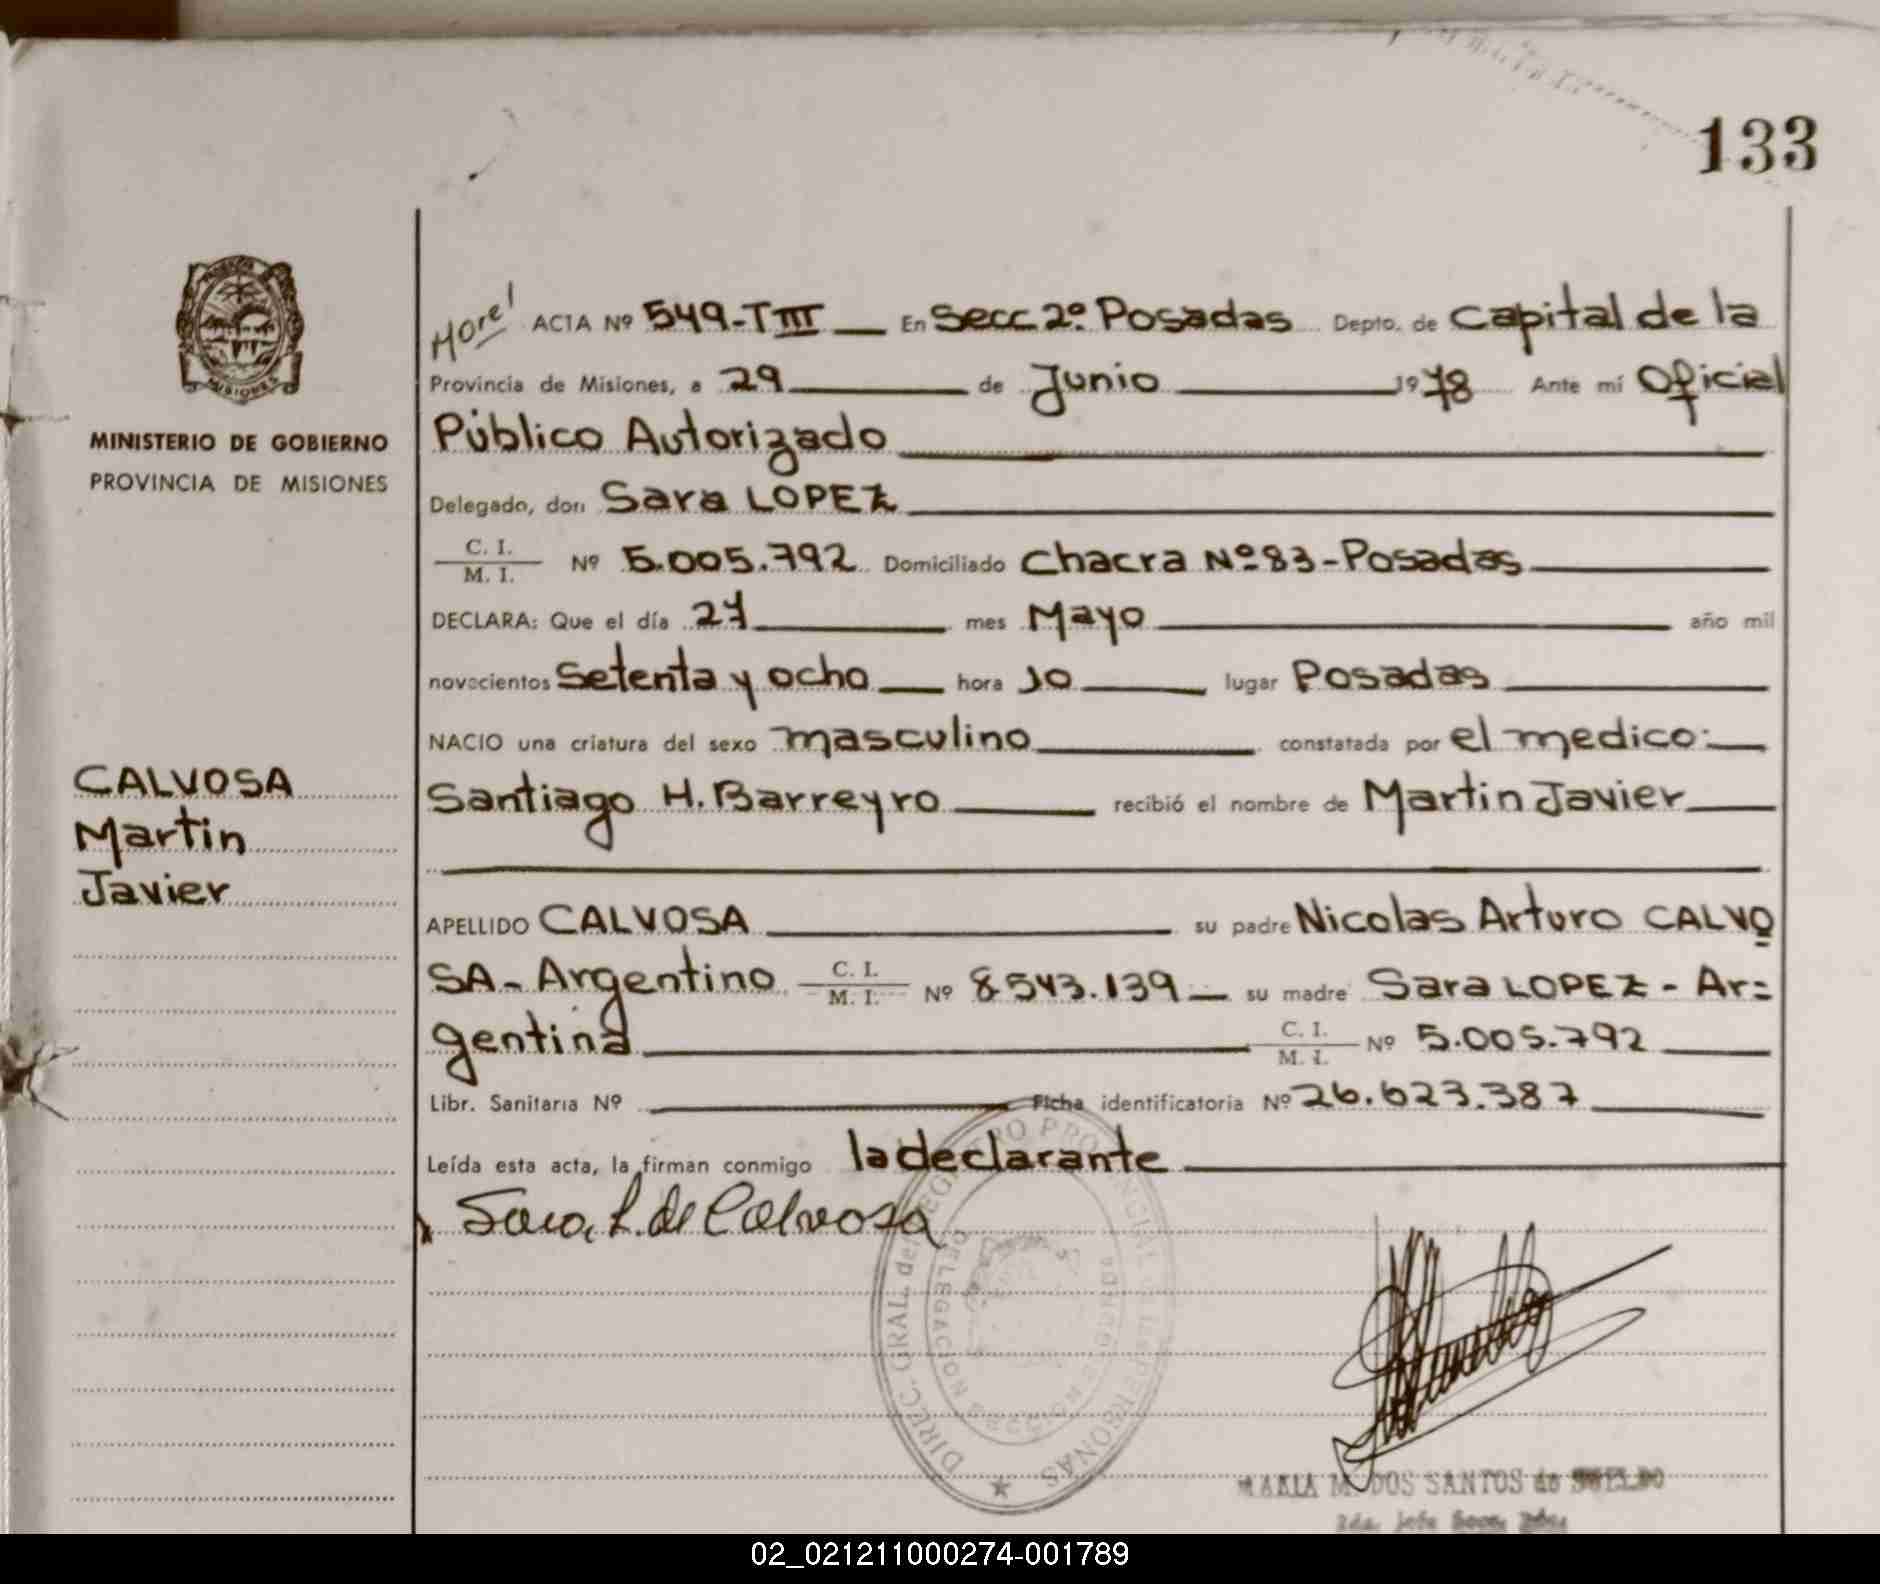 133
MISIONES
MINISTERIO DE GOBIERNO
PROVINCIA DE MISIONES
CALVOSA
Martin
Javier
ACTA Nº 549-TIII En Secc 2º Posadas Depto. de Capital de la
Provincia de Misiones, a 29 de Junio 1978 Ante mí Oficial
Público Autorizado
Delegado, don Sara LOPEZ
C. I.
M. I. Nº 5.005.792 Domiciliado Chacra Nº 83-Posadas
DECLARA: Que el día 27 mes Mayo año mil
novecientos Setenta y ocho hora 10 lugar Posadas
NACIO una criatura del sexo masculino constatada por el medico:
Santiago H. Barreyro recibió el nombre de Martin Javier
APELLIDO CALVOSA su padre Nicolas Arturo CALVO
SA- Argentino C. I. M. I. Nº 8543.139 su madre Sara LOPEZ - Ar=
gentina C. I. M. I. Nº 5.005.792
Libr. Sanitaria Nº Ficha identificatoria Nº 26.623.387
Leída esta acta, la firman conmigo la declarante
Sara L. de Calvosa
DIREC. GRAL. del REGISTRO PROVINCIAL PERSONAS
DELEGACION
MARIA M. DOS SANTOS de SUELDO
02_021211000274-001789